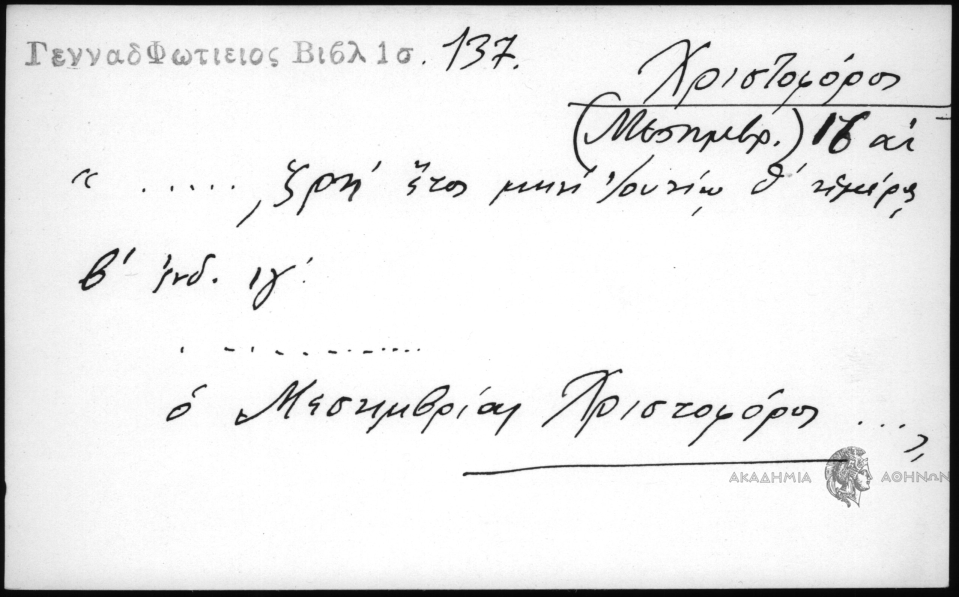 Γενναδ Φωτιειος Βιβλ 1σ. 137.
Χριστοφόρος
(Μεσημβρ.) 16 αἰ
“ ..... ͵ζρκή ἔτος μηνὶ Ἰουνίῳ θ´ ἡμέρᾳ
β´ ἰνδ. ιγ´.
. . . . . . . . . . . .
ὁ Μεσημβρίας Χριστοφόρος ...”
ΑΚΑΔΗΜΙΑ ΑΘΗΝΩΝ